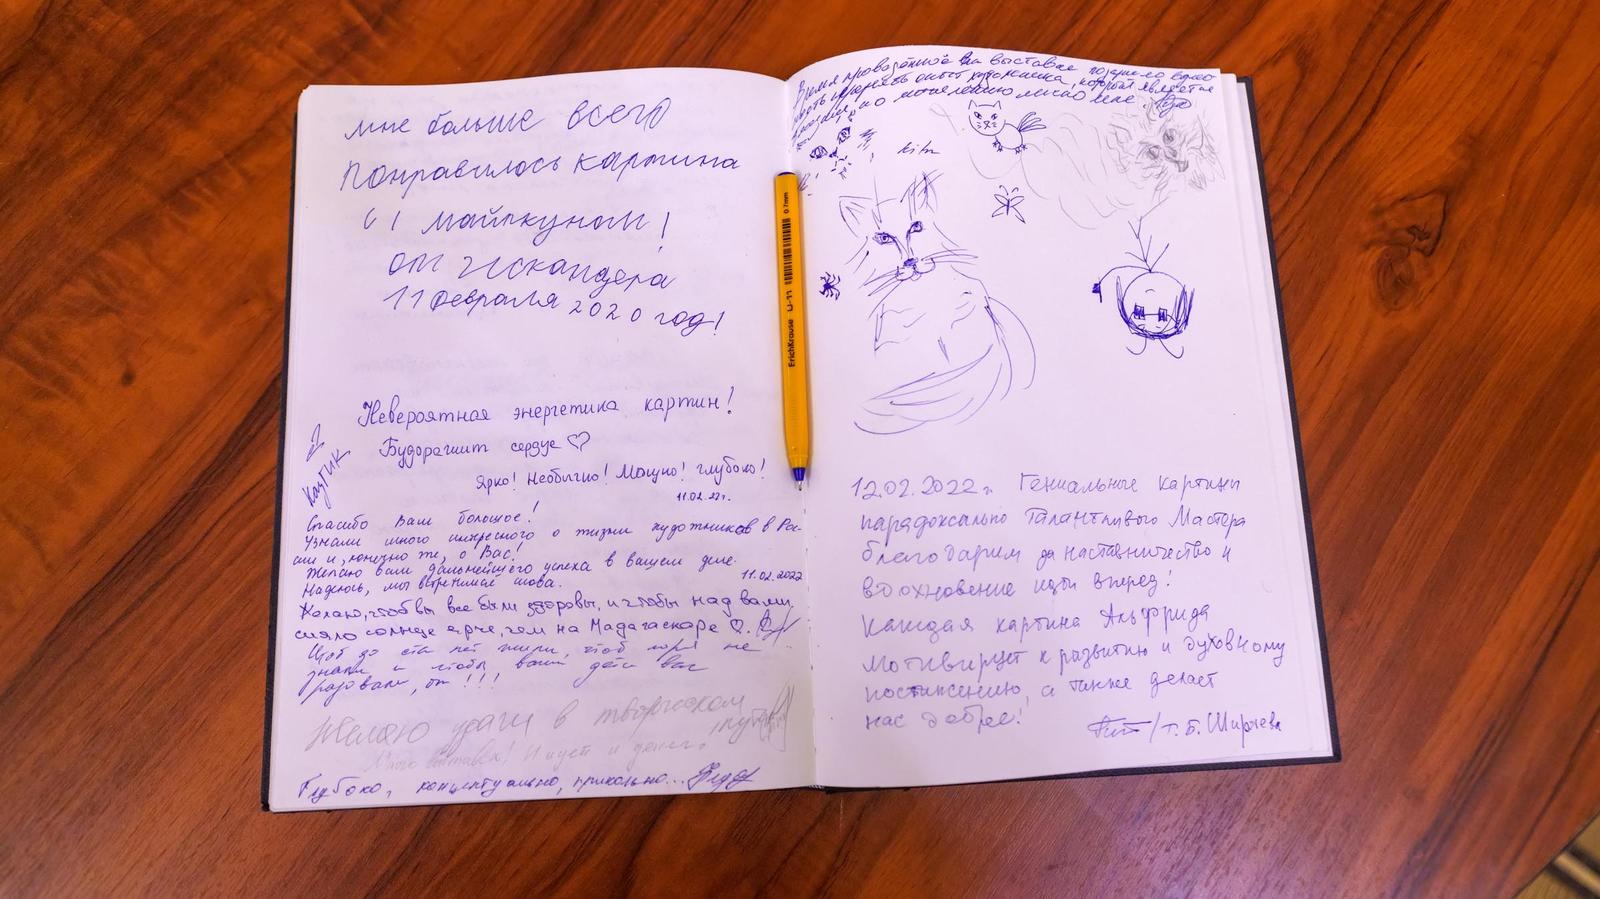 мне больше всего
понравилось картина
с майнкуном!
от Искандера
11 февраля 2020 год!
Невероятная энергетика картин!
Будоражит сердце ♡
Ярко! Необычно! Мощно! Глубоко!
11.02.22г.
Спасибо Вам большое!
Узнали много интересного о жизни художников в Рос-
сии и, конечно же, о Вас!
Желаю вам дальнейшего успеха в вашем деле.
Надеюсь, мы встретимся снова.
11.02.2022
Желаю, чтоб вы все были здоровы, и чтобы над вами
сияло солнце ярче, чем на Мадагаскаре ♡.
Чтоб до ста лет жили, чтоб горя не
знали и чтобы ваши дети вас
радовали,
Желаю удачи в творческом
пути
Глубоко, концептуально, прикольно...
ErichKrause U-11 0.7mm
Время проведённое на выставке
12.02.2022г. Гениальные картины
парадоксально Талантливого Мастера
благодарим за наставничество и
вдохновение идти вперед!
Каждая картина Альфрида
мотивирует к развитию и духовному
постижению, а также делает
нас добрее!